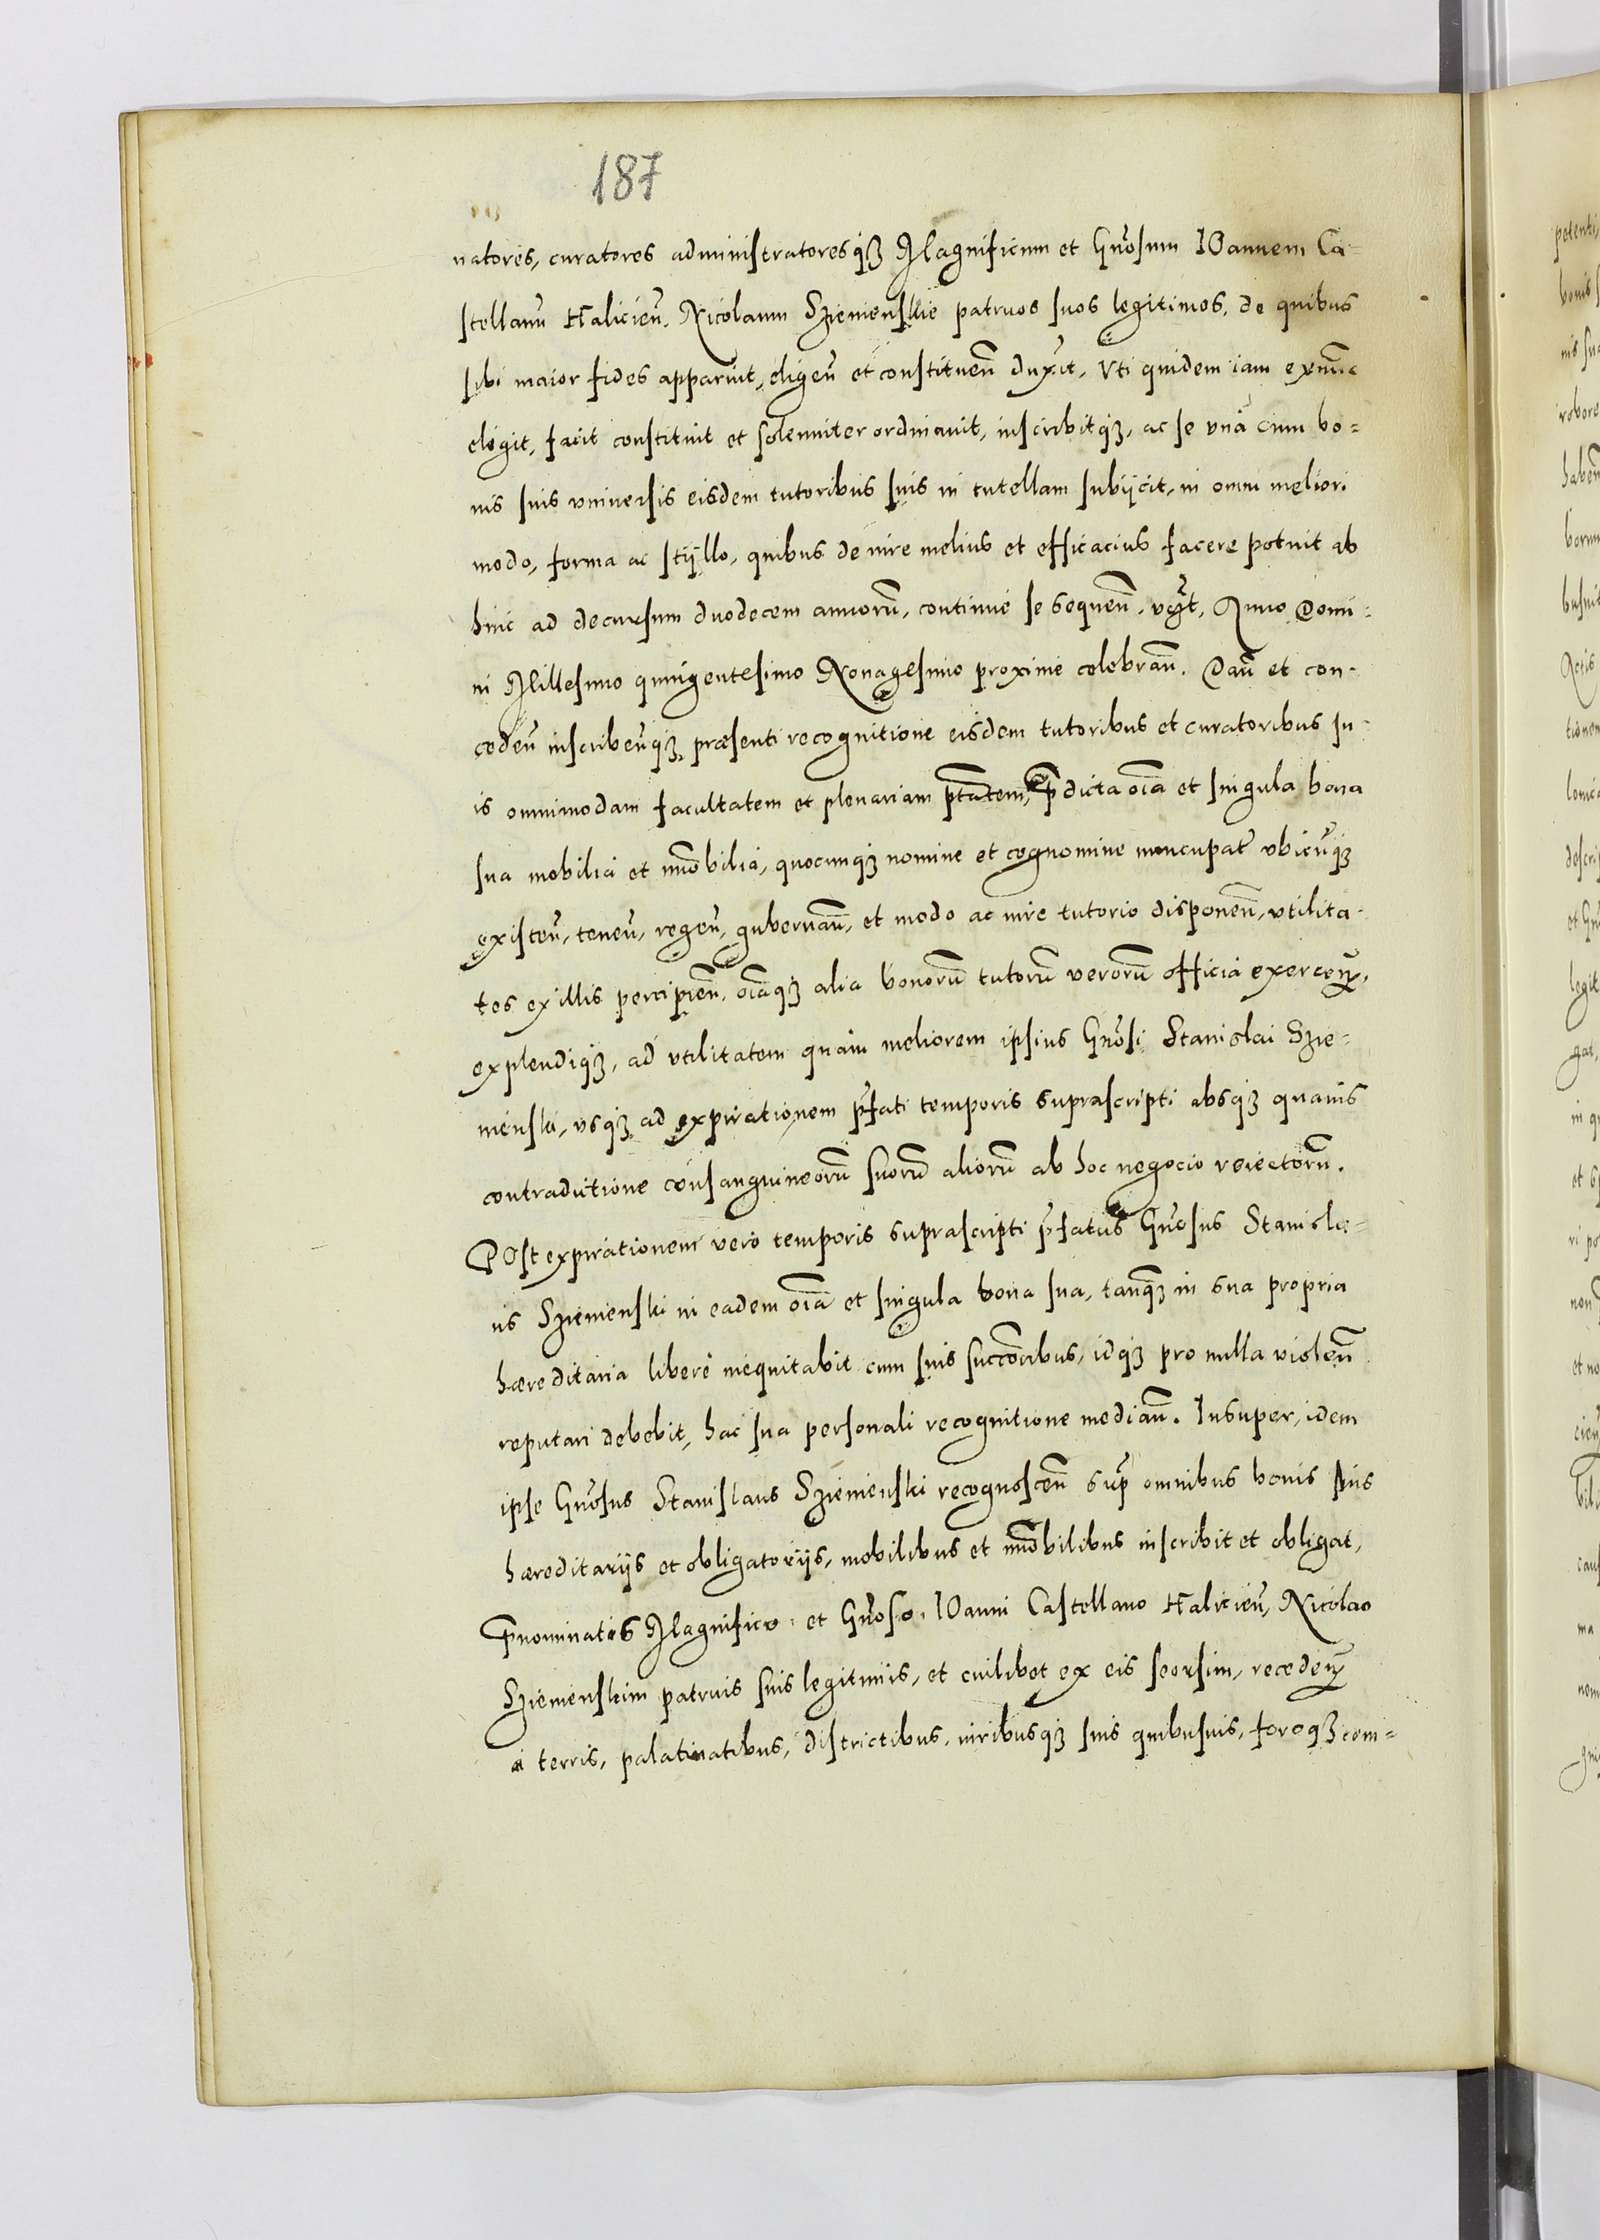 187
natores, curatores administratoresqꝫ Magnificum et Gn̄osum IOannem Ca-
stellanū Halicieñ. Nicolaum Sziemienskie patruos suos legitimos, de quibus
sibi maior fides apparuit, eligeñ et constitueñ duxit, Vti quidem iam exnunc
elegit, facit constituit et solenniter ordinauit, inscribitqꝫ, ac se vnà cum bo=
nis suis vniuersis eisdem tutoribus suis in tutellam subijcit, in omni meliori
modo, forma ac stijllo, quibus de iure melius et efficacius facere potuit ab
hinc ad decursum duodecem annorū, continuè se sequeñ, vꝫt, Anno Domi-
ni Millesimo quingentesimo Nonagesimo proximè celebrañ. Dañ et con-
cedeñ inscribeñqꝫ præsenti recognitione eisdem tutoribus et curatoribus su-
is omnimodam facultatem et plenariam ptātem, p̄dicta oīa et singula bona
sua mobilia et im̄obilia, quocunqꝫ nomine et cognomine nuncupat̄ vbicūqꝫ
existeñ, teneñ, regeñ, gubernañ, et modo ac iure tutorio disponeñ, vtilita-
tes ex illis percipieñ, oīaqꝫ alia bonorū tutorū verorū officia exerceñ,
explendiqꝫ, ad vtilitatem quàm meliorem ipsius Gn̄osi Stanislai Szie-
mienski, vsqꝫ ad expirationem p̄fati temporis suprascripti absqꝫ quauis
contradictione consanguineorū suorū aliorū ab hoc negocio reiectorū.
POst expirationem verò temporis suprascripti p̄fatus Gn̄osus Stanisla-
us Sziemienski in eadem oīa et singula bona sua, tanqꝫ in sua propria
hæreditaria liberè inequitabit cum suis succ̄oribus, idqꝫ pro nulla violeñ
reputari debebit, hac sua personali recognitione mediañ. Insuper, idem
ipse Gn̄osus Stanislaus Sziemienski recognosceñ sup̄ omnibus bonis suis
hæreditarijs et obligatorijs, mobilibus et im̄obilibus inscribit et obligat,
P̄nominatis Magnifico et Gn̄oso IOanni Castellano Halicieñ, Nicolao
Sziemienskim patruis suis legitimis, et cuilibet ex eis seorsim, recedeñ
à terris, palatinatibus, districtibus, iuribusqꝫ suis quibusuis, foroqꝫ com=